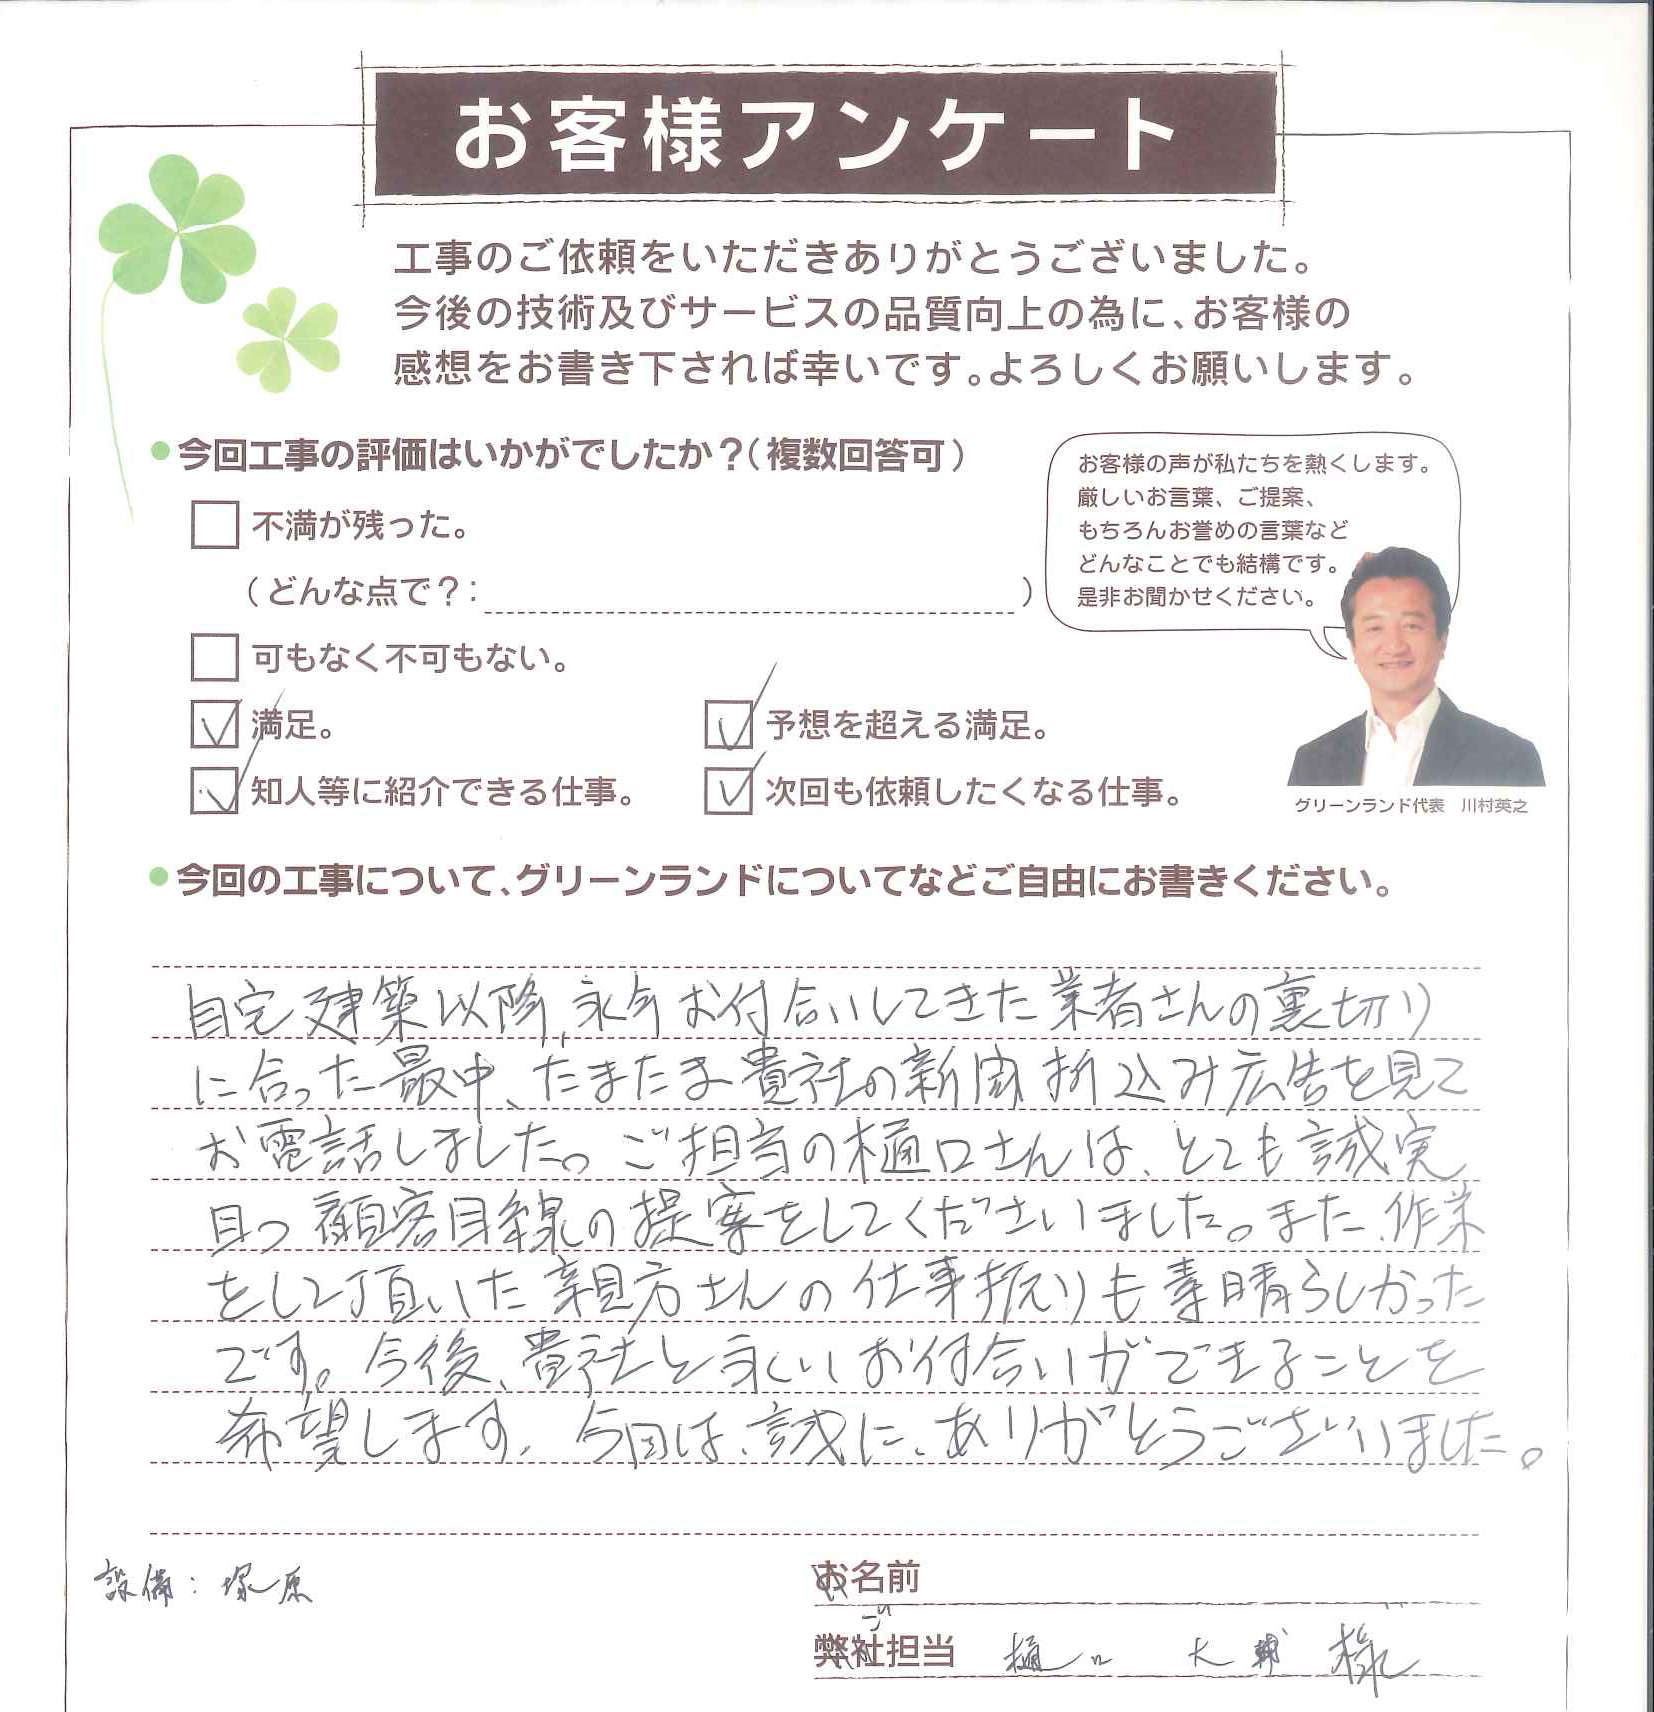 お客様アンケート
工事のご依頼をいただきありがとうございました。
今後の技術及びサービスの品質向上の為に、お客様の
感想をお書き下されば幸いです。よろしくお願いします。
今回工事の評価はいかがでしたか？（複数回答可）
不満が残った。
（どんな点で？： ）
可もなく不可もない。
満足。
予想を超える満足。
知人等に紹介できる仕事。
次回も依頼したくなる仕事。
お客様の声が私たちを熱くします。
厳しいお言葉、ご提案、
もちろんお誉めの言葉など
どんなことでも結構です。
是非お聞かせください。
グリーンランド代表　川村英之
今回の工事について、グリーンランドについてなどご自由にお書きください。
自宅建築以降、永年お付合いしてきた業者さんの裏切り
に合った最中、たまたま貴社の新聞折込み広告を見て
お電話しました。ご担当の樋口さんは、とても誠実
且つ顧客目線の提案をしてくださいました。また、作業
をして頂いた親方さんの仕事振りも素晴らしかった
です。今後、貴社と永いお付合いができることを
希望します。今回は、誠に、ありがとうございました。
設備：塚原
お名前
ご
弊社担当　樋口　大輔　様